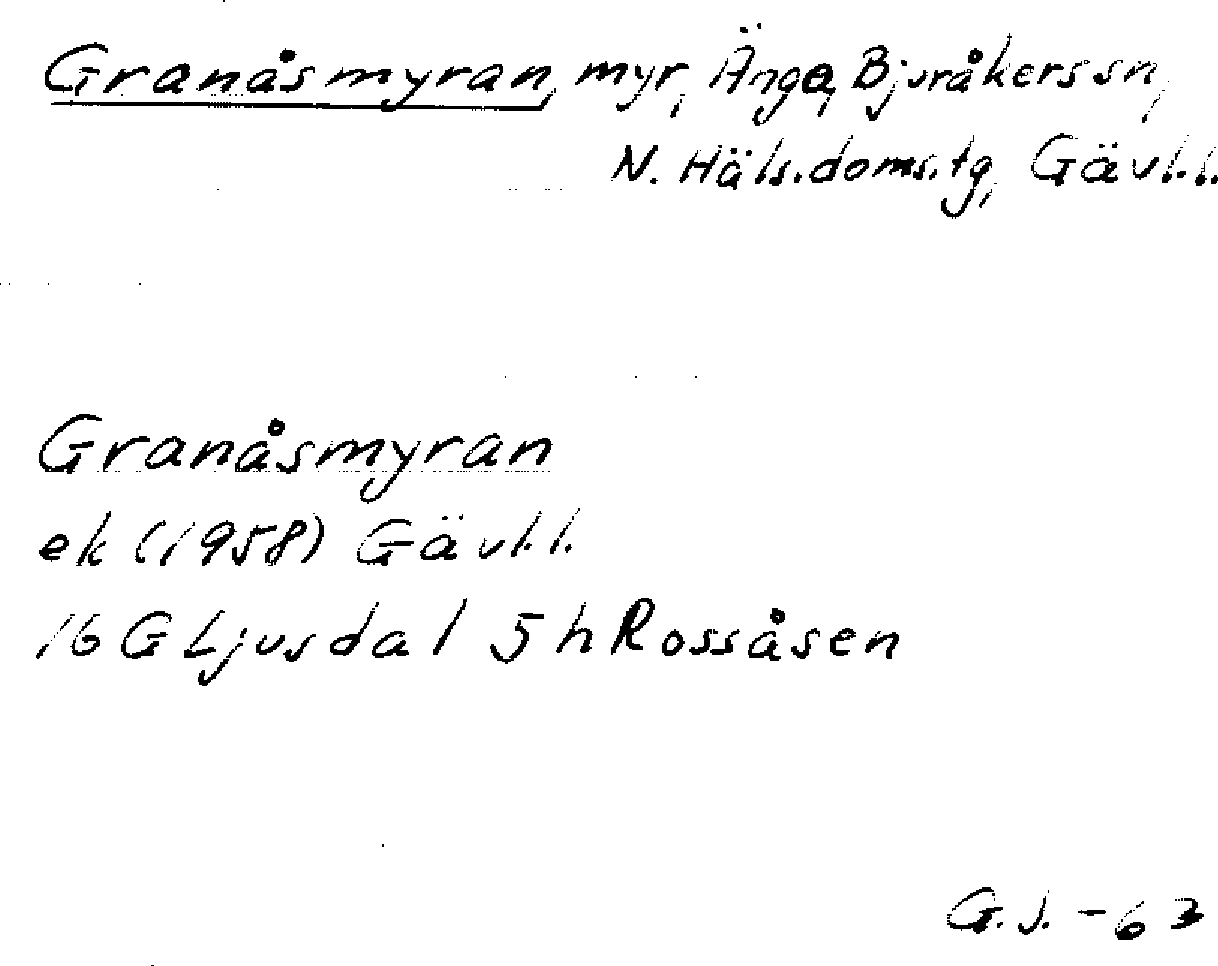 Granåsmyran, myr, Änga, Bjuråkers sn,
N. Häls.doms.tg, Gävl.l.
Granåsmyran
ek (1958) Gävl.l.
16 G Ljusdal 5 h Rossåsen
G.J. -63